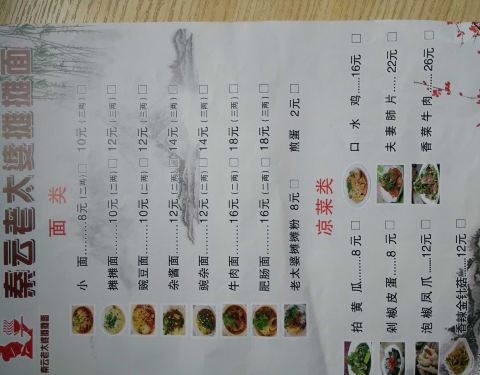 秦云老太婆摊摊面
秦云老太婆摊摊面
面 类
小 面........8元(二两)□ 10元(三两)□
摊摊面........10元(二两)□ 12元(三两)□
豌豆面........10元(二两)□ 12元(三两)□
杂酱面........12元(二两)□ 14元(三两)□
豌杂面........12元(二两)□ 14元(三两)□
牛肉面........16元(二两)□ 18元(三两)□
肥肠面........16元(二两)□ 18元(三两)□
老太婆摊摊粉 8元□ 煎蛋 2元□
凉菜类
拍黄瓜......8元□ 口 水 鸡......16元□
剁椒皮蛋......8元□ 夫妻肺片.....22元□
泡椒凤爪......12元□ 香菜牛肉......26元□
香辣金针菇......12元□